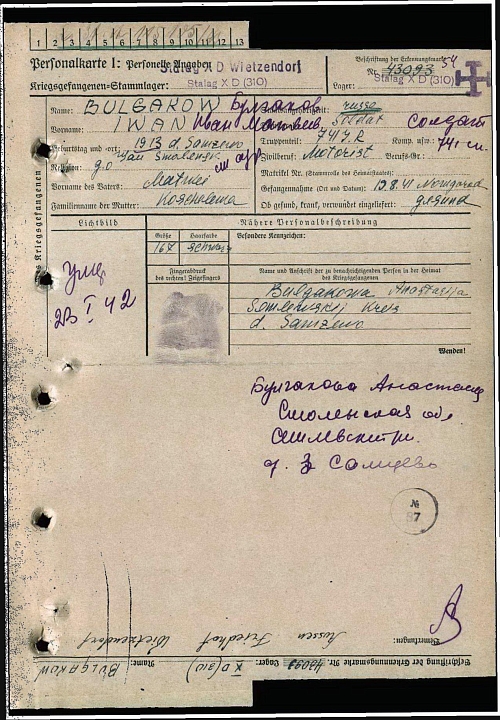 1 2 3 4 5 6 7 8 9 10 11 12 13
Personalkarte I: Personelle Angaben
Stalag X D Wietzendorf
Beschriftung der Erkennungsmarke
Nr. 43093
Kriegsgefangenen-Stammlager:
Stalag X D (310)
Lager: Stalag X D (310)
des Kriegsgefangenen
Name: BULGAKOW Булгаков
Staatsangehörigkeit: russe
Vorname: IWAN Иван
Dienstgrad: Soldat Солдат
Geburtstag und -ort: 1913 d. Samzewo
Truppenteil: 741 J.R. Komp. usw.: 741
Zivilberuf: Motorist Berufs-Gr.:
Religion: g.o.
Matrikel Nr. (Stammrolle des Heimatstaates):
Vorname des Vaters: Matwei
Gefangennahme (Ort und Datum): 19.8.41 Nowgorod
Familienname der Mutter:
Ob gesund, krank, verwundet eingeliefert: gesund
Lichtbild
Nähere Personalbeschreibung
Größe Haarfarbe Besondere Kennzeichen:
167 schwarz
Fingerabdruck
des rechten! Zeigefingers
Name und Anschrift der zu benachrichtigenden Person in der Heimat
des Kriegsgefangenen
Bulgakowa Anastasija
Kreis
d. Samzewo
Wenden!
умер
23 I 42
Булгакова Анастасия
Смоленская обл
№
57
Bemerkungen:
Russen Friedhof Wietzendorf
Beschriftung der Erkennungsmarke Nr. 43093 Lager: X D (310) Name: BULGAKOW